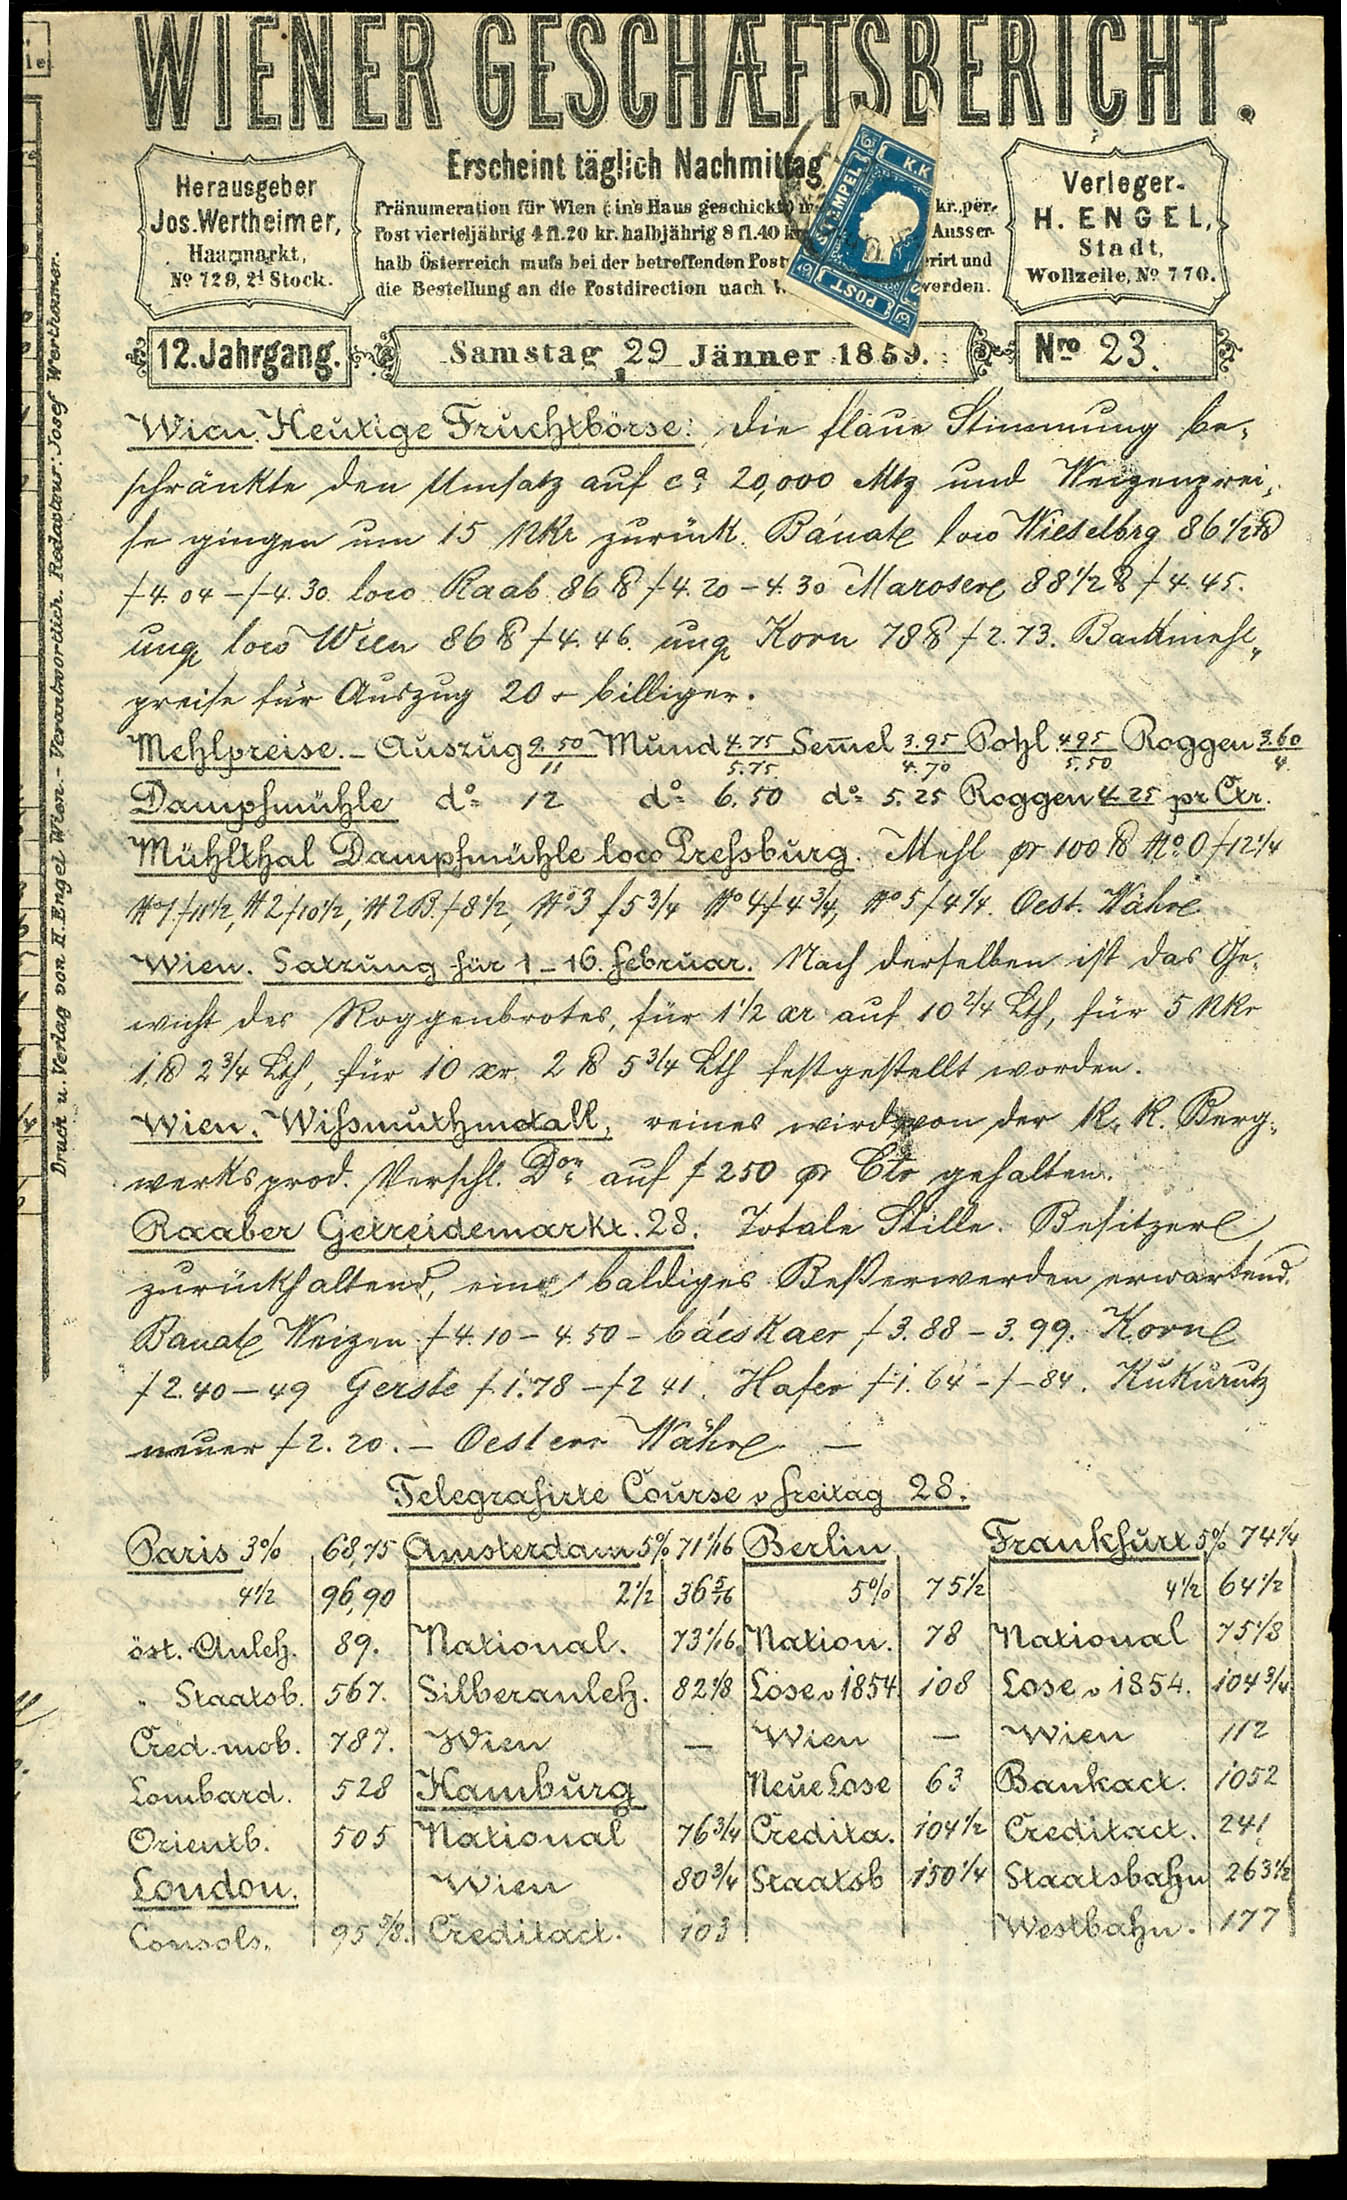 WIENER GESCHÆFTSBERICHT.
Erscheint täglich Nachmittag
Herausgeber
Jos. Wertheimer,
Haarmarkt,
No 729, 2t Stock.
Pränumeration für Wien (: in's Haus geschickt:) kr. per.
Post vierteljährig 4 fl. 20 kr. halbjährig 8 fl. 40 Ausser-
halb Österreich muſs bei der betreffenden Post und
die Bestellung an die Postdirection nach werden.
K.K
STÆMPEL
POST
Verleger.
H. ENGEL,
Stadt,
Wollzeile, No 770.
12. Jahrgang.
Samstag 29 Jänner 1859.
Nro 23.
Wien. Heutige Fruchtbörse: Die flaue Stimmung be-
schränkte den Umsatz auf ca 20,000 Mtz und Weizenprei-
se gingen um 15 NKr zurück. Banate loco Wieselbrg 86 1/2 ℔
f 4.04 – f 4.30 loco Raab 86 ℔ f 4.20 – 4.30 Maroser 88 1/2 ℔ f 4.45.
ung loco Wien 86 ℔ f 4.46. ung Korn 78 ℔ f 2.73. Backmehl-
preise für Auszug 20 billiger.
Mehlpreise. – Auszug 9.50/11 Mund 4.75/5.75 Sem̄el 3.95/4.70 Pohl 4.95/5.50 Roggen 3.60/4.
Dampfmühle do 12 do 6.50 do 5.25 Roggen 4.25 pr Ctr.
Mühlthal Dampfmühle loco Preſsburg. Mehl pr 100 ℔ No 0 f 12 1/4
No 1 f 11 1/2, No 2 f 10 1/2, No 2 B. f 8 1/2, No 3 f 5 3/4 No 4 f 4 3/4, No 5 f 4 1/4. Oest. Währ
Wien. Satzung für 1 – 16. Februar. Nach derselben ist das Ge-
wicht des Roggenbrotes, für 1 1/2 xr auf 10 2/4 Lth, für 5 NKr
1 ℔ 2 3/4 Lth, für 10 xr 2 ℔ 5 3/4 Lth festgestellt worden.
Wien. Wiſsmuthmetall, reines wird von der K. K. Berg-
werksprod. Verschl. Don auf f 250 pr Ctr gehalten.
Raaber Getreidemarkt. 28. Totale Stille. Besitzer
zurückhaltend, ein baldiges Beßerwerden erwartend.
Banate Weizen f 4.10 – 4.50 – bácskaer f 3.88 – 3.99. Korn
f 2.40 – 49 Gerste f 1.78 – f 2 41. Hafer f 1.64 – f – 84. Kukurutz
neuer f 2.20. – Oesterr Währ. –
Telegrafirte Course v Freitag 28.
Paris 3% 68,75 Amsterdam 5% 71 1/16 Berlin Frankfurt 5% 74 1/4
4 1/2 96,90 2 1/2 36 5/16 5% 75 1/2 4 1/2 64 1/2
öst. Anleh. 89. National. 73 1/16 Nation. 78 National 75 1/8
" Staatsb. 567. Silberanleh. 82 1/8 Lose v 1854. 108 Lose v 1854. 104 3/4
Cred. mob. 787. Wien – Wien – Wien 112
Lombard. 528 Hamburg Neue Lose 63 Bankact. 1052
Orientb. 505 National 76 3/4 Credita. 104 1/2 Creditact. 241
London. Wien 80 3/4 Staatsb 150 1/4 Staatsbahn 263 1/2
Consols. 95 5/8. Creditact. 103 Westbahn. 177
Druck u. Verlag von H. Engel Wien. – Verantwortlich. Redacteur: Josef Wertheimer.